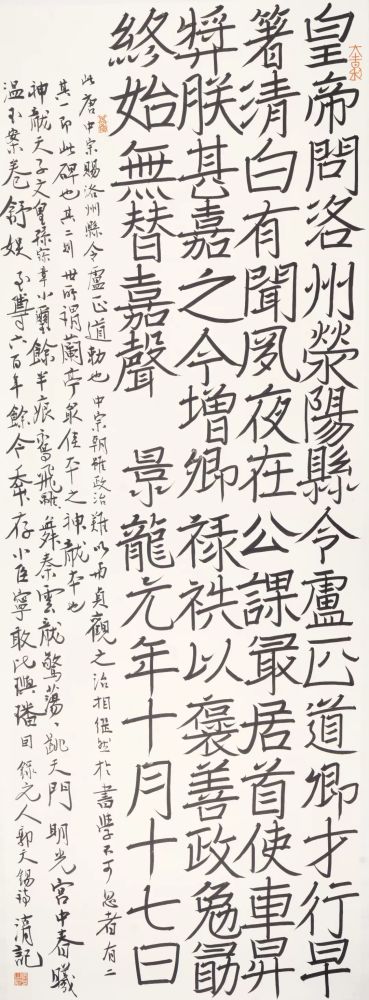 大吉利
皇帝問洛州滎陽縣令盧正道卿才行早
箸清白有聞夙夜在公課最居首使車昇
奬朕甚嘉之今增卿祿袟以褒善政勉勗
終始無替嘉聲 景龍元年十月十七日
此唐中宗賜洛州縣令盧正道勅也中宗朝雖政治難以與貞觀之治相儗然於書學不可忽者有二
其一即此碑也其二則世所謂蘭亭最佳本之神龍本也
神龍天子文皇孫寶章小璽餘半痕鸞飛離舞秦雲龍驚蕩蕩跳天門明光宮中春曦
溫玉案卷舒娛至尊六百年餘今幸存小臣寧敢比璵璠 錄元人郭天錫詩 記